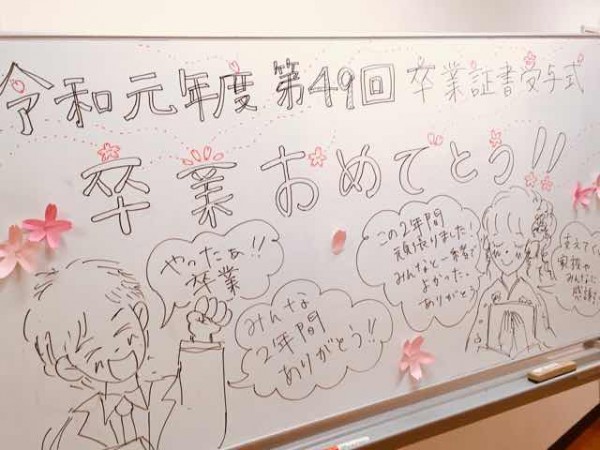 令和元年度 第49回 卒業証書授与式
卒業おめでとう!!
やったぁ!!
卒業
みんな
2年間
ありがとう!!
この2年間
頑張りました!
みんなと一緒で
よかった。
ありがとう
支えてく
家族や
みんなに
感謝